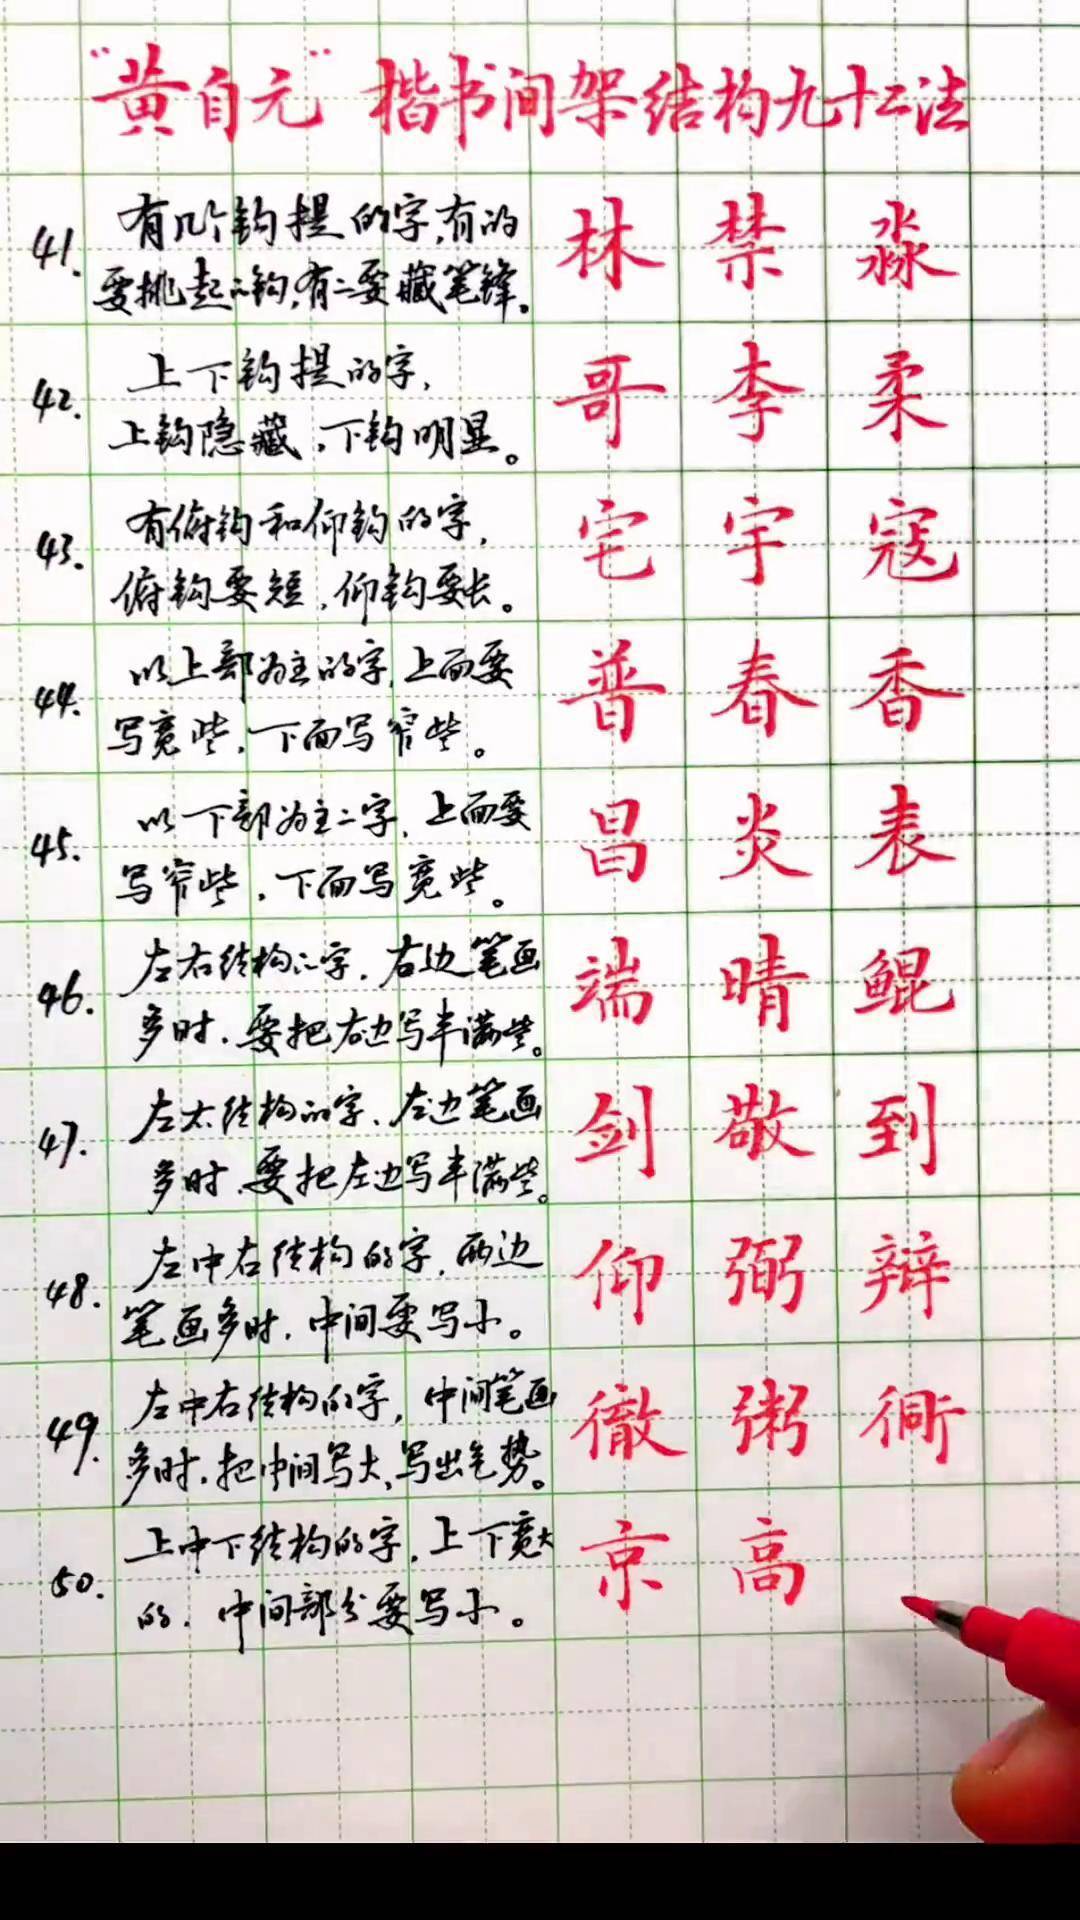 "黄自元"楷书间架结构九十二法
41. 有几个钩提的字,有的
要挑起的钩,有的要藏笔锋。
林 禁 淼
42. 上下钩提的字,
上钩隐藏,下钩明显。
哥 李 柔
43. 有俯钩和仰钩的字,
俯钩要短,仰钩要长。
宅 宇 寇
44. 以上部为主的字,上面要
写宽些,下面写窄些。
普 春 香
45. 以下部为主的字,上面要
写窄些,下面写宽些。
昌 炎 表
46. 左右结构的字,右边笔画
多时,要把右边写丰满些。
端 晴 鲲
47. 左右结构的字,左边笔画
多时,要把左边写丰满些。
剑 敬 到
48. 左中右结构的字,两边
笔画多时,中间要写小。
仰 弼 辩
49. 左中右结构的字,中间笔画
多时,把中间写大,写出气势。
徹 粥
50. 上中下结构的字,上下宽大
的,中间部分要写小。
京 高